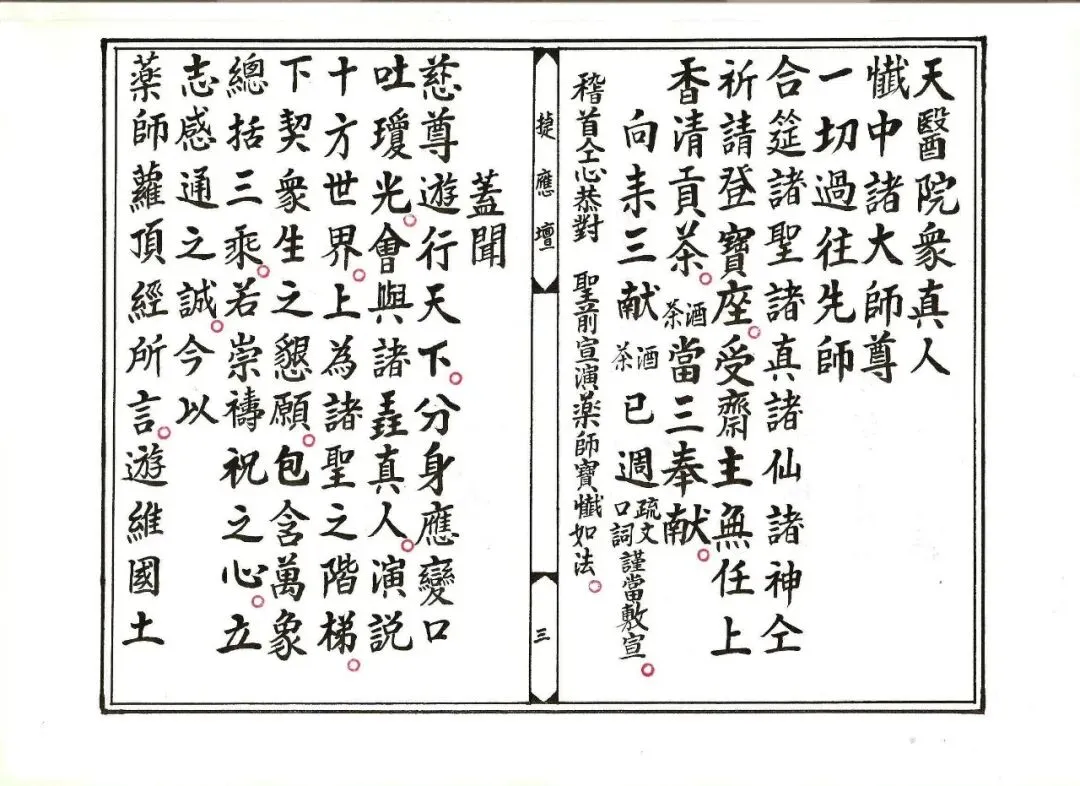 天醫院衆真人
懺中諸大師尊
一切過往先師
合筵諸聖諸真諸仙諸神仝
祈請登寶座。受齋主無任上
香清貢茶。酒茶當三奉献。
向来三献酒茶已週疏文口詞謹當敷宣。
稽首仝心恭對　聖前宣演薬師寶懺如法。
捷應壇
三
蓋聞
慈尊遊行天下。分身應變口
吐瓊光。會與諸真人。演説
十方世界。上為諸聖之階梯。
下契衆生之懇願。包含萬象
總括三乘。若崇禱祝之心。立
志感通之誠。今以
薬師蘿頂經所言。遊維國土